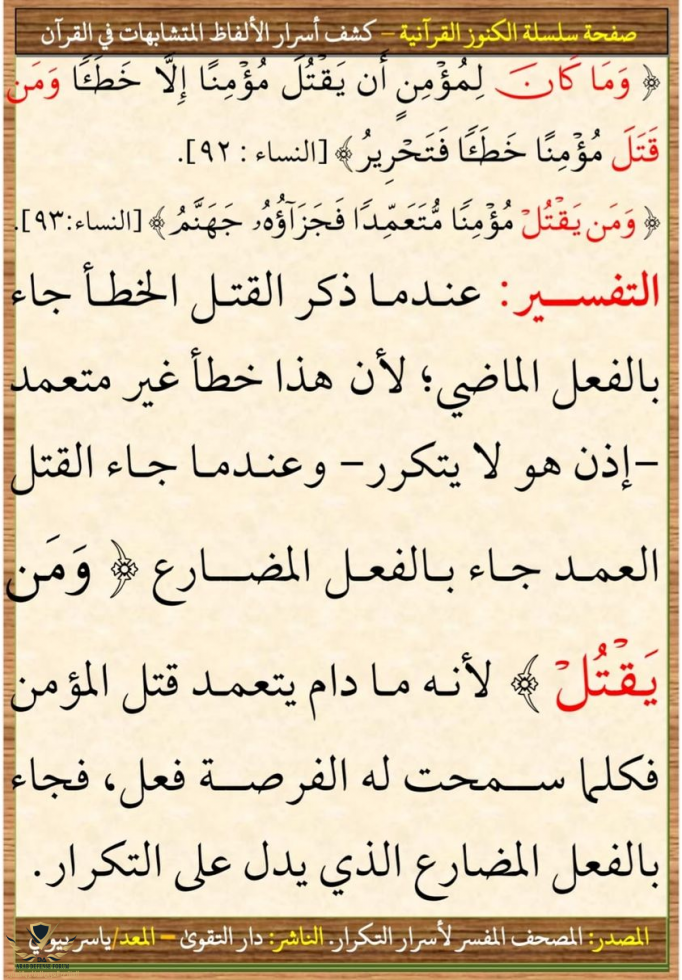 صفحة سلسلة الكنوز القرآنية – كشف أسرار الألفاظ المتشابهات في القرآن
﴿ وَمَا كَانَ لِمُؤْمِنٍ أَن يَقْتُلَ مُؤْمِنًا إِلَّا خَطَـًٔا وَمَن
قَتَلَ مُؤْمِنًا خَطَـًٔا فَتَحْرِيرُ ﴾ [النساء : ٩٢].
﴿ وَمَن يَقْتُلْ مُؤْمِنًا مُّتَعَمِّدًا فَجَزَآؤُهُۥ جَهَنَّمُ ﴾ [النساء:٩٣].
التفسير: عندما ذكر القتل الخطأ جاء
بالفعل الماضي؛ لأن هذا خطأ غير متعمد
–إذن هو لا يتكرر– وعندما جاء القتل
العمد جاء بالفعل المضارع ﴿ وَمَن
يَقْتُلْ ﴾ لأنه ما دام يتعمد قتل المؤمن
فكلما سمحت له الفرصة فعل، فجاء
بالفعل المضارع الذي يدل على التكرار.
المصدر: المصحف المفسر لأسرار التكرار. الناشر: دار التقوى – المعد/ياسر بيومي
ARAB DEFENSE FORUM